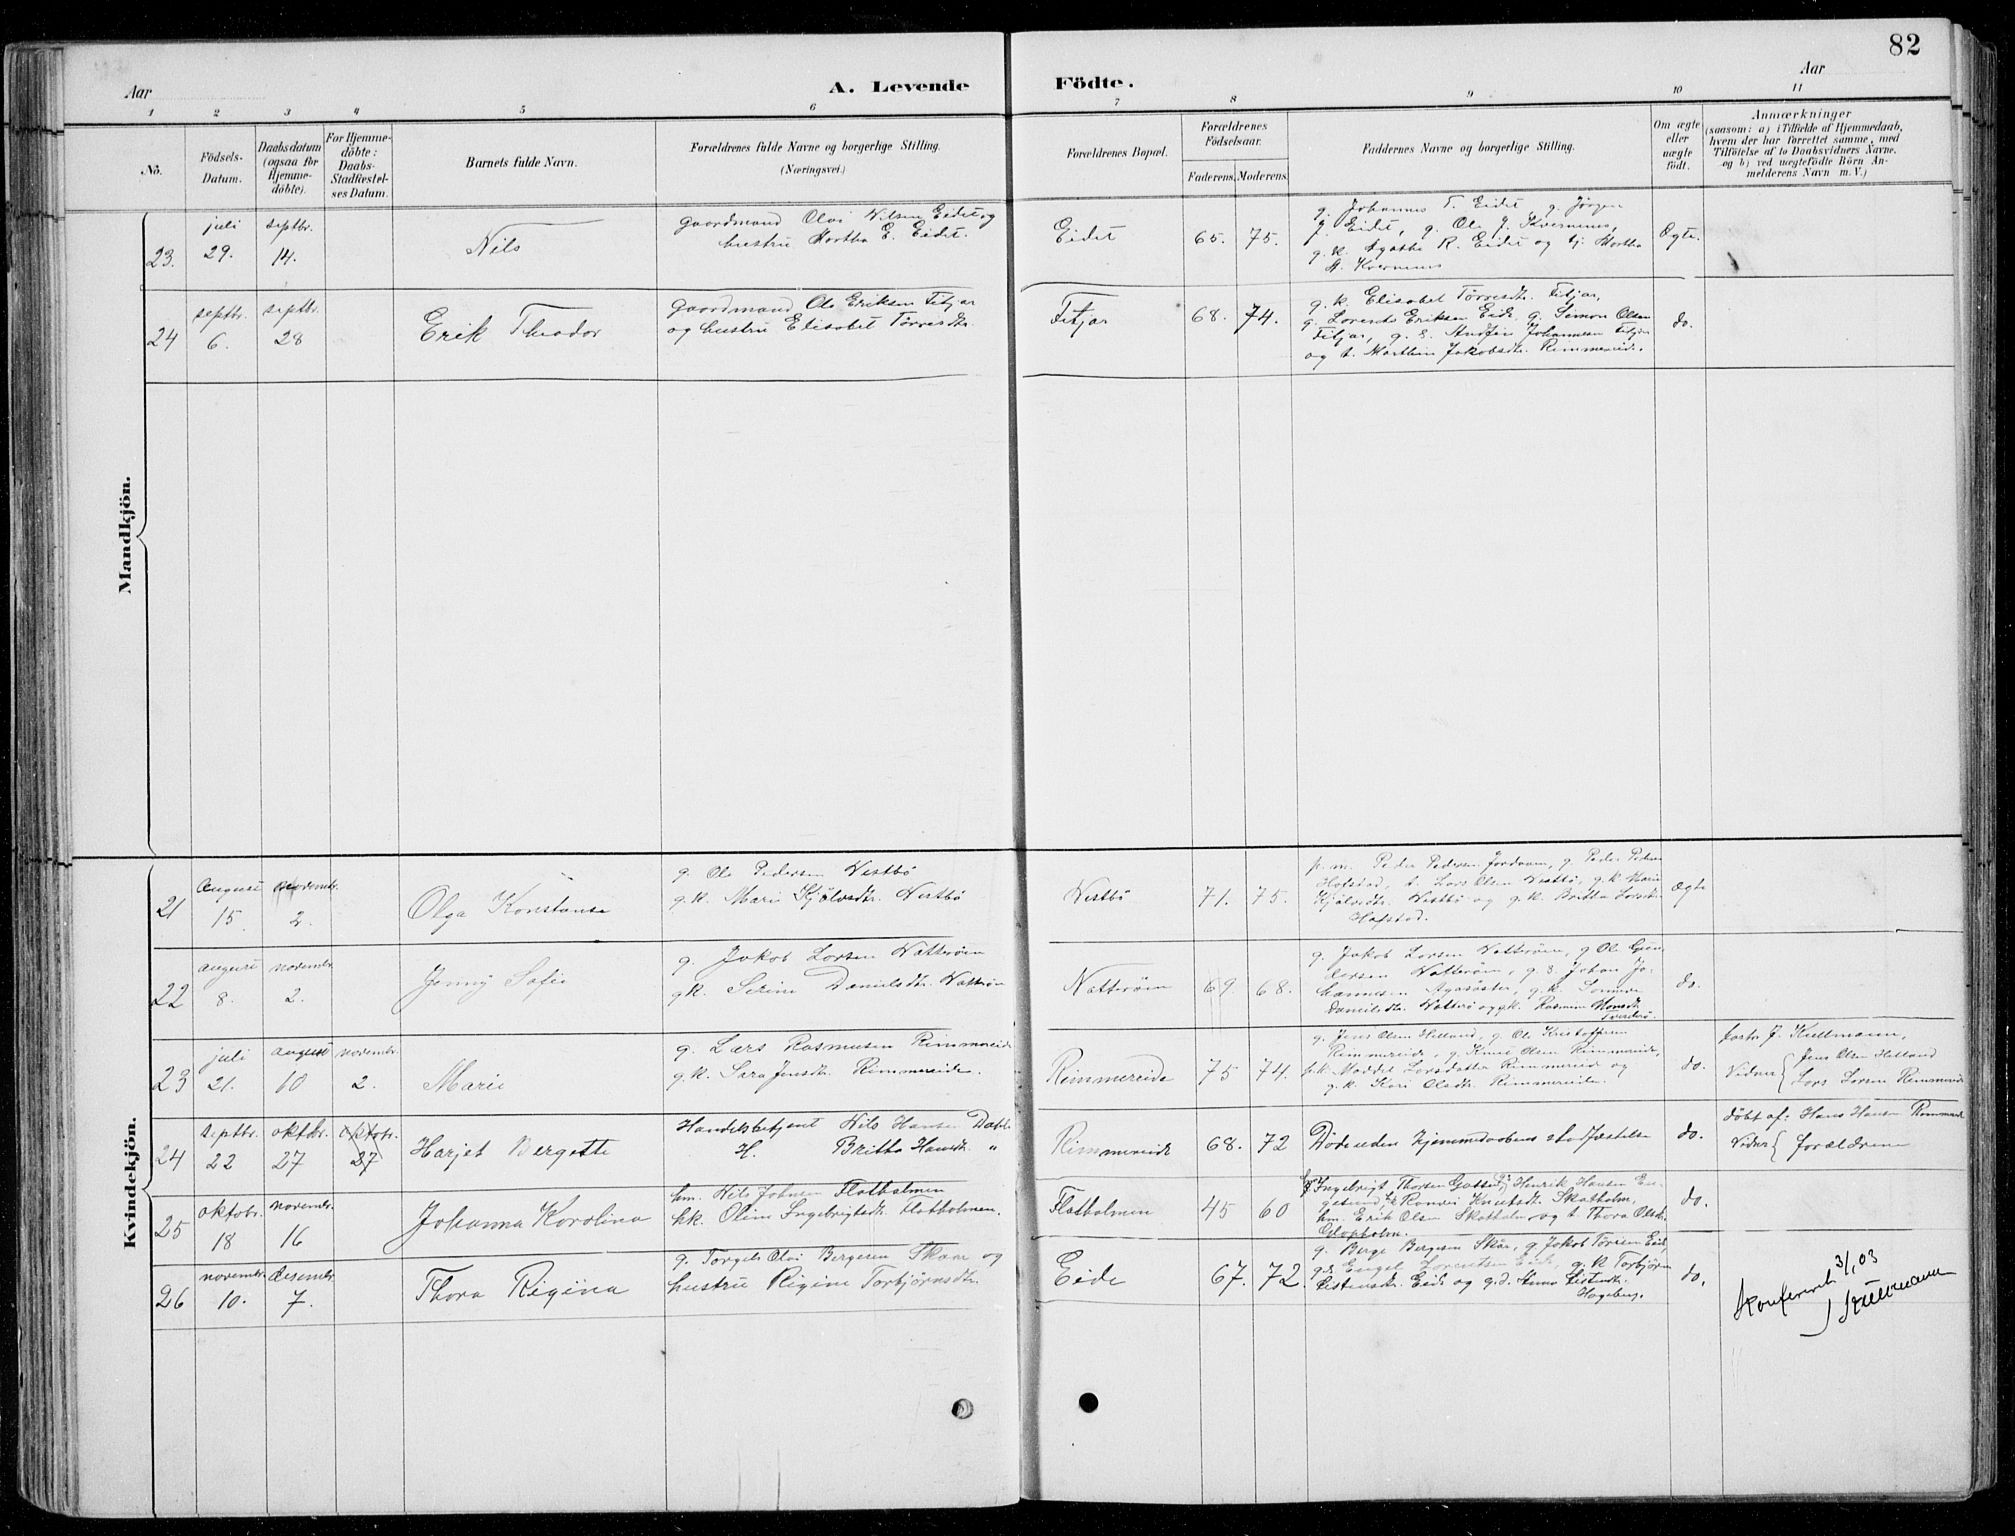 82
Aar
A. Levende
Födte.
Aar
1 2 3 4 5 6 7 8 9 10 11
No.
Födsels-
Datum.
Daabsdatum
(ogsaa for
Hjemme-
döbte).
For Hjemme-
döbte:
Daabs-
Stadfæstel-
ses Datum.
Barnets fulde Navn.
Forældrenes fulde Navne og borgerlige Stilling.
(Næringsvei.)
Forældrenes Bopæl.
Forældrenes
Födselsaar.
Faderens. Moderens.
Faddernes Navne og borgerlige Stilling.
Om ægte
eller
uægte
födt.
Anmærkninger
(saasom: a) i Tilfælde af Hjemmedaab,
hvem der har forrettet samme, med
Tilföielse af to Daabsvidners Navne.
og b) ved uegtefödte Börn An-
melderens Navn m. V.)
Mandkjön.
23.
juli
29.
septbr.
14.
Nils
Gaardmand Olai Nilsen Eidet og
hustru Martha E. Eidet.
Eidet
65. 75.
g. Johannes T. Eidet g. Jørgen
J. Eidet, g. Ole J. Kvernenes,
g.k. Agathe R. Eidet og Martha
Kvernenes
Ægte.
24
septbr.
6.
septbr.
28
Erik Theodor
Gaardmand Ole Eriksen Fitjar
og hustru Elisabet Tørresdtr.
Fitjar
68. 74.
g.k. Elisabet Tørresdtr. Fitjar,
g. Lorents Eriksen Eide g. Simon Olsen
Fitjar, g. s. Andfin Johannesen Fitjar
og t. Marthin Jakobsdtr. Rimmereide.
do.
Kvindekjön.
21
August
15.
novembr.
2.
Olga Konstanse
g. Ole Pedersen Vestbø
g.k. Mari Kjølvsdtr. Vestbø
Vestbø
71. 75.
p.m. Peder Pedersen Jordvam, g. Peder Peders.
Hofstad, t. Lars Olsen Vestbø, g.k. Mari
Kjølvsdtr. Vestbø og g.k. Britha Larsdtr.
Hafstad.
Ægte
22
august
8.
novembr.
2.
Jenny Sofie
g. Jakob Larsen Natterøen
gk. Serine Danielsdtr. Natterøen
Natterøen
69. 68.
g. Jakob Larsen Natterøen, g Ole Gun-
dersen Natterøen, g.s. Johan Jo-
hannesen Agasøster, g.k.
Danielsdtr. Natterø og gk. Rasmine Monsdtr.
do.
23
juli
21.
august
10
novembr.
2.
Marie
g. Lars Rasmusen Rimmereide
g.k. Sara Jensdtr. Rimmereide.
Rimmereide
75 74.
g. Jens Olsen Helland, g. Ole Kristoffersen
Rimmereide, g. Knut Olsen Rimmereide,
p.k. Maddel Larsdatter Rimmereide og
g.k. Kari Olsdtr. Rimmereide.
do.
forr. J. Kullmann,
Vidner { Jens Olsen Helland
Lars Larsen Rimmereide
24
septbr.
22
oktbr.
27
oktobr.
27
Harjet Bergette
Handelsbetjent Nils Hansen Dahl
H. Britha Hansdtr. "
Rimmereide
68. 72
Døde uden Hjemmedaabens stadfæstelse
do.
døbt af: Hans Hansen Rimmereide
Vidner { forældrene
25
oktobr.
18
novembr.
16
Johanna Karolina
hm. Nils Johnsen Flatholmen
hk. Oline Ingebrigtsdtr. Flatholmen.
Flatholmen
45 60
Ingebrigt Thorsen Henrik Hansen En-
gesund, Ranvei Knutsdtr. Skatholm,
hm. Erik Olsen Skatholm og t. Thora Olsdtr.
do.
26
novembr.
10.
desembr.
7.
Thora Rigina
g. Torgils Olai Bergesen Skaar og
hustru Rigine Torbjørnsdtr.
Eide
67. 72.
g. Berge Bergesen Skår, g Jakob Tørresen Eide,
gs. Engel Lorentsen Eide, g.k Torbjørn
Eistensdtr. Eide og g.d. Anna Eistensdtr.
Hageberg.
do.
Konfereret 3/1 03
J Kullmann